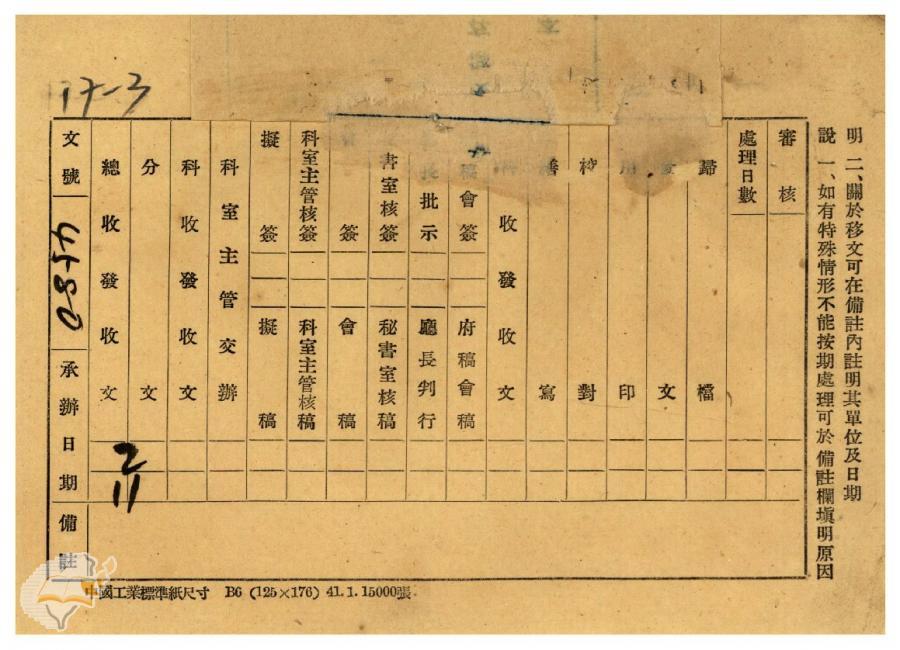 17-3
文號
4580
承辦日期
備註
總收發收文
2
11
分文
科收發收文
科室主管交辦
擬簽
擬稿
科室主管核簽
科室主管核稿
會簽
會稿
書室核簽
秘書室核稿
長批示
廳長判行
稿會簽
府稿會稿
收發收文
繕寫
校對
用印
發文
歸檔
處理日數
審核
說
明
一、如有特殊情形不能按期處理可於備註欄填明原因
二、關於移文可在備註內註明其單位及日期
中國工業標準紙尺寸 B6 (125×176) 41.1.15000張